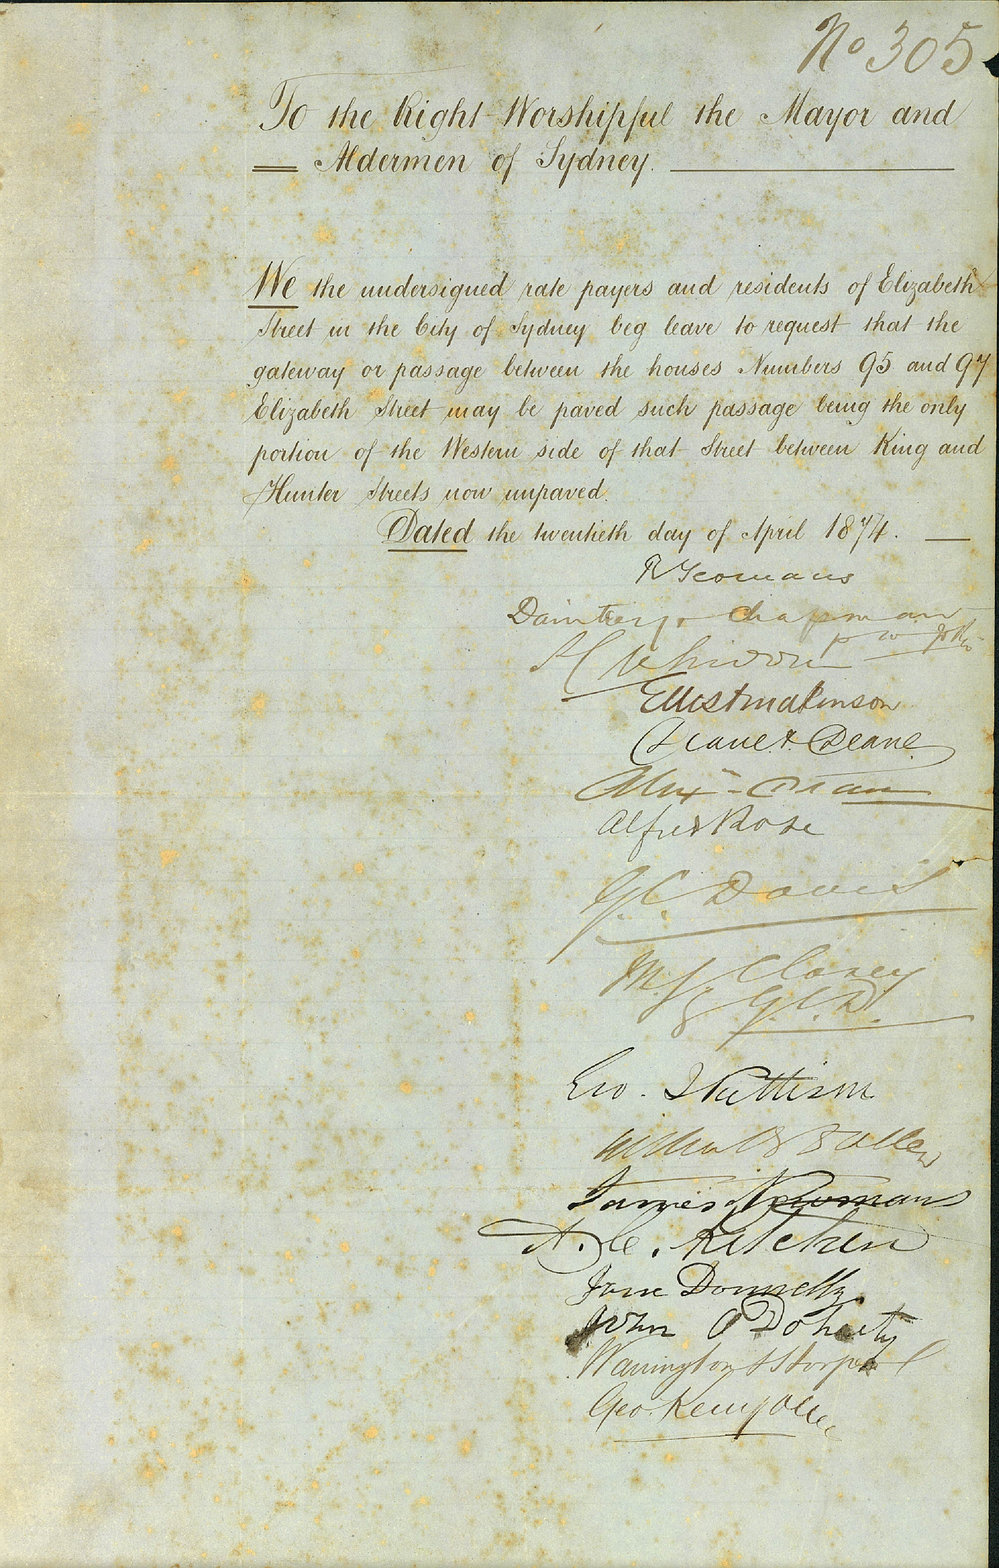 No 305
To the Right Worshipful the Mayor and
Aldermen of Sydney.
We the undersigned rate payers and residents of Elizabeth
Street in the City of Sydney beg leave to request that the
gateway or passage between the houses Numbers 95 and 97
Elizabeth Street may be paved such passage being the only
portion of the Western side of that Street between King and
Hunter Streets now unpaved.
Dated the twentieth day of April 1874.
R Yeomans
Daintrey & Chapman
Ellis & Makinson
Deane & Deane
Alfred Rose
G. C. Davis
Clancy
G.C.D.
Geo.
James Yeomans
A. C. Aitchen
Jane Donnelly
John O'Doherty
Warrington
Geo.